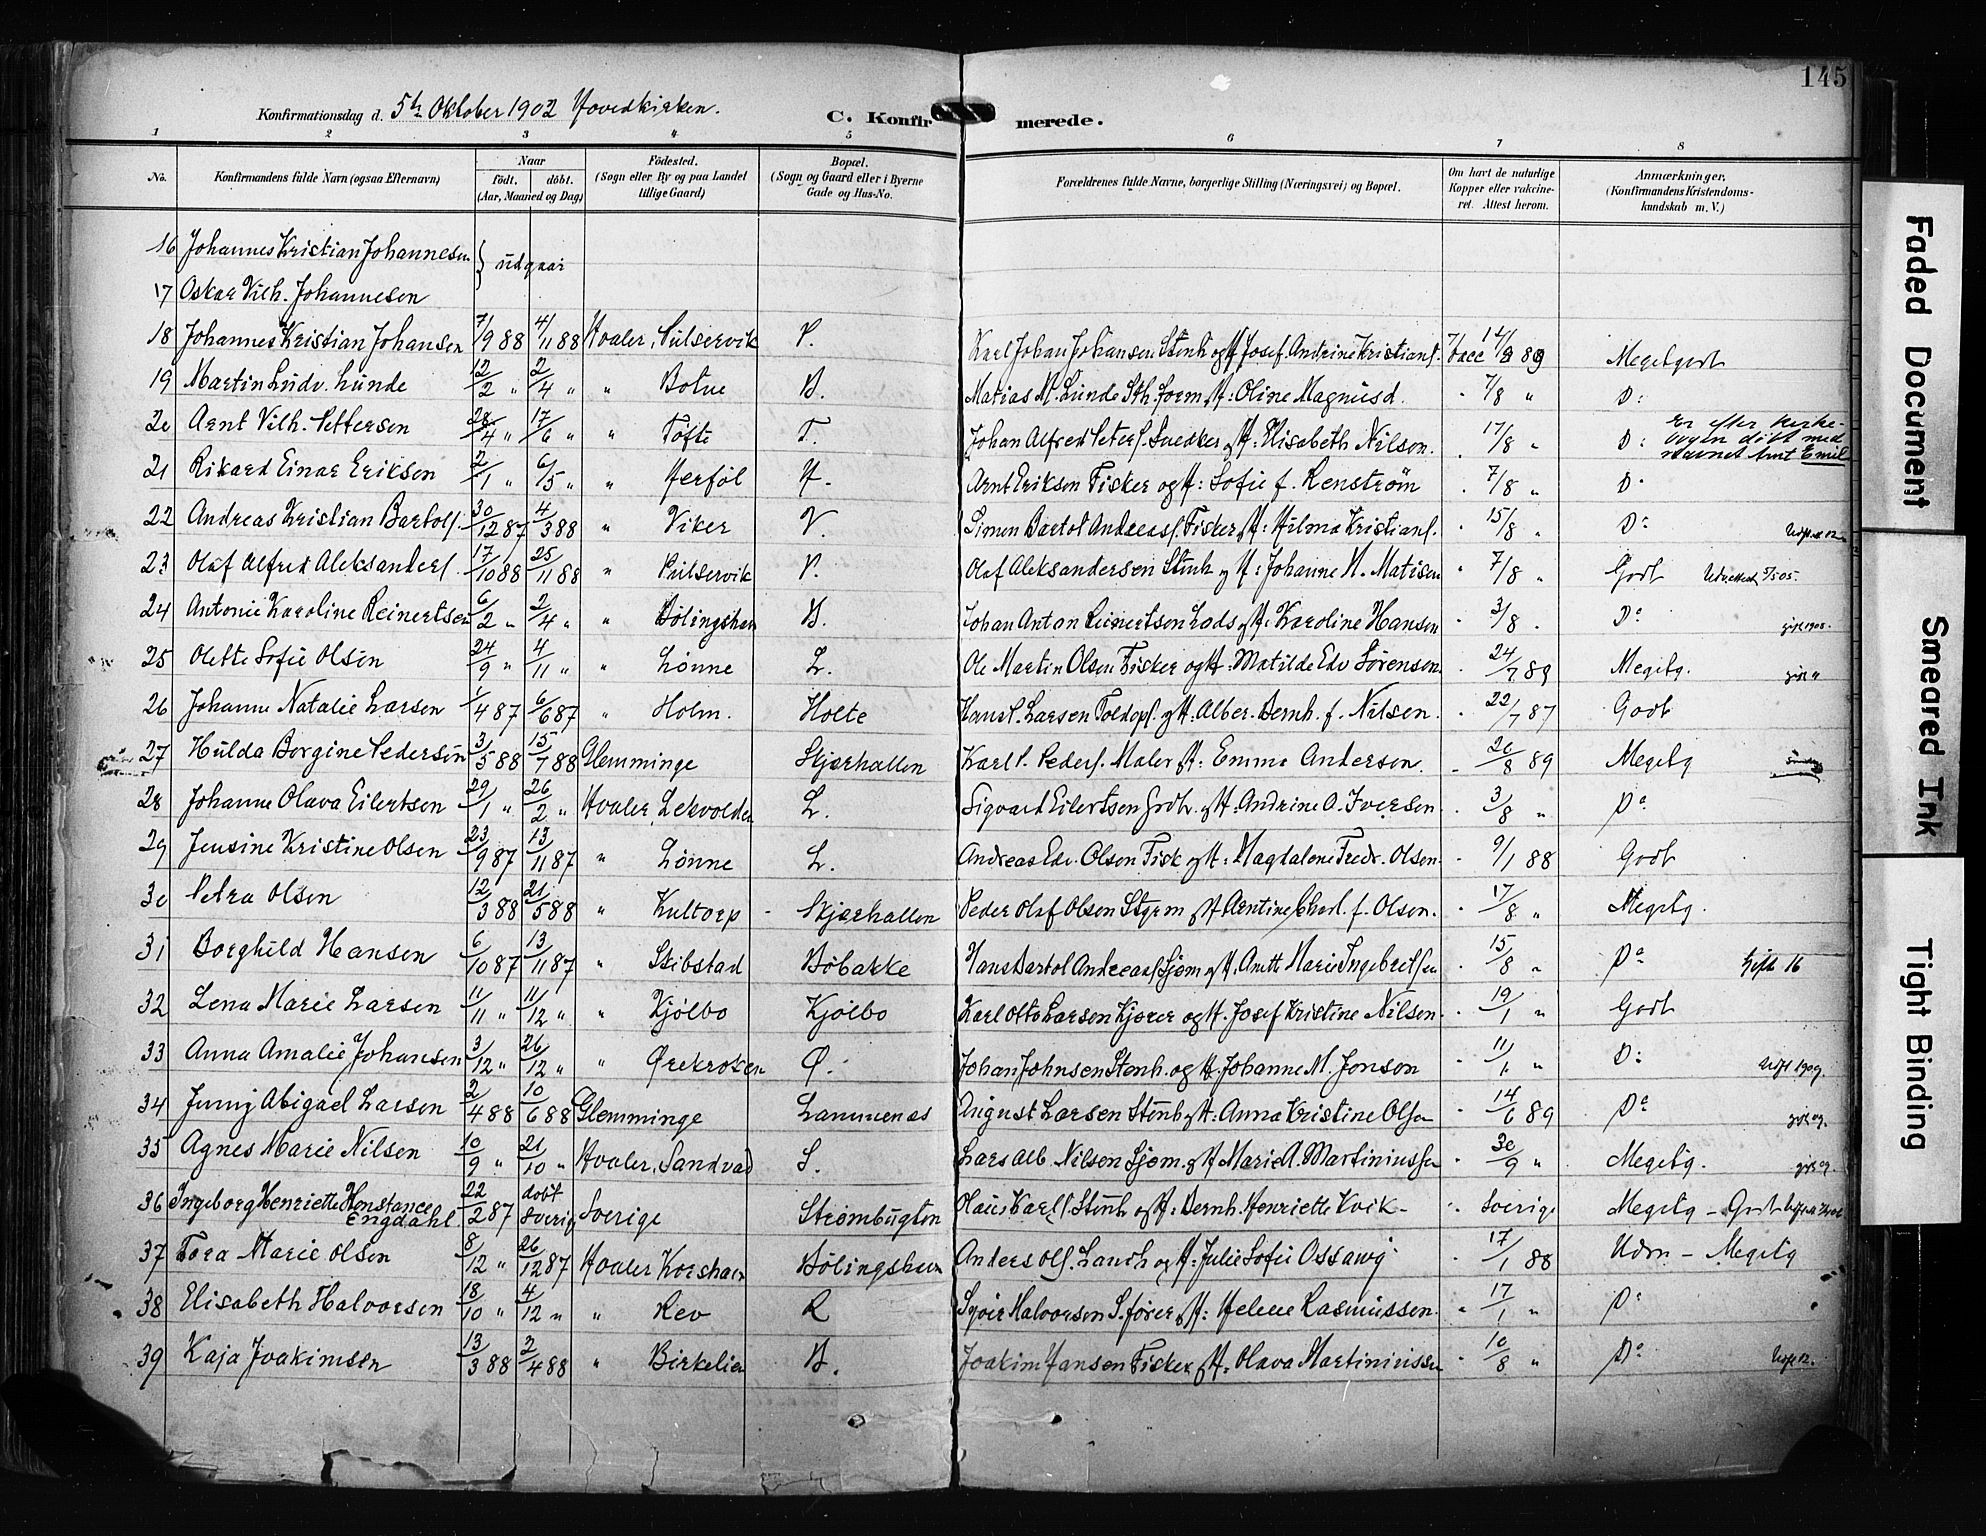 145
Konfirmationsdag d. 5te Oktober 1902 Hovedkirken.
C. Konfirmerede.
1 2 3 4 5 6 7 8
No. Konfirmandens fulde Navn (ogsaa Efternavn) Naar födt. döbt. (Aar, Maaned og Dag) Födested. (Sogn eller By og paa Landet tillige Gaard) Bopæl. (Sogn og Gaard eller i Byerne Gade og Hus-No. Forældrenes fulde Navne, borgerlige Stilling (Næringsvei) og Bopæl. Om havt de naturlige Kopper eller vakcineret. Attest herom. Anmærkninger, (Konfirmandens Kristendomskundskab m. V.)
16 Johannes Kristian Johannesen } udgaar
17 Oskar Vilh. Johannesen
18 Johannes Kristian Johansen 7/9 88 4/11 88 Hvaler, Pulservik P. Karl Johan Johansen Stenh og H Josef. Andrine Kristians. Vacc 89 Megetgodt
19 Martin Ludv. Lunde 12/2 " 2/4 " " Botne B. Matias M. Lunde Sth. form H: Oline Magnusd. " 7/8 " Do:
20 Arnt Vilh. Pettersen 28/4 " 17/6 " " Tofte T. Johan Alfred Peters. Snedker H: Elisabeth Nilsen. " 17/8 " Do: Er efter kirkebogen döbt med navnet Arnt Emil
21 Rikard Einar Eriksen 2/1 " 6/5 " " Herföl H. Arnt Eriksen Fisker og H: Sofie f. Renström " 7/8 " Do
22 Andreas Kristian Bartols. 30/12 87 4/3 88 " Viker V. Simon Bartol Andreass. Fisker, H: Hilma Kristians. " 15/8 " Do
23 Olaf Alfred Aleksanders. 17/10 88 25/11 88 " Pulservik P. Olaf Aleksandersen Stenh og H: Johanne M. Matisen " 7/8 " Godt Udvettet 5/5 05.
24 Antonie Karoline Reinertsen 6/2 " 2/4 " " Bölingshavn B. Johan Anton Reinertsen Lods og H: Karoline Hansen " 3/8 " Do gift 1908.
25 Olette Sofie Olsen 24/9 " 4/11 " " Lönne L. Ole Martin Olsen Fisker og H: Matilde Edv Sörensen " 24/7 89 Megetg. gift "
26 Johanne Natalie Larsen 1/4 87 6/6 87 " Holm. Holte Hans L. Larsen Toldops. og H: Alber. Bernh. f. Nilsen. " 22/7 87 Godt
27 Hulda Borgine Pedersen 3/5 88 15/7 88 Glemminge Skjærhallen Karl P. Peders. Maler H: Emma Andersen. " 20/8 89 Megetg
28 Johanne Olava Eilertsen 29/1 " 26/2 " Hvaler, Lekvolden L. Sigvard Eilertsen Grdbr. og H. Andrine O. Iversen " 3/8 " Do
29 Jensine Kristine Olsen 23/9 87 13/11 87 " Lönne L. Andreas Edv. Olsen Fisk og H: Magdalene Fredr. Olsen " 9/1 88 Godt
30 Petra Olsen 12/3 88 21/5 88 " Kultorp Skjærhallen Peder Olaf Olsen Styrm og H Arntine Charl. f. Olsen. " 17/8 " Megetg.
31 Borghild Hansen 6/10 87 13/11 87 " Skibstad Böbakke Hans Bartol Andreass Sjöm og H. Anette Marie Ingebretsen " 15/8 " Do Gift 16
32 Lena Marie Larsen 11/11 " 11/12 " " Kjölbo Kjölbo Karl Otto Larsen Kjører og H. Josef Kristine Nilsen. " 19/1 " Godt
33 Anna Amalie Johansen 3/12 " 26/12 " " Ørekroken Ø. Johan Johnsen Stenh. og H. Johanne M. Jonson " 11/1 " Do: 1909.
34 Jenny Abigael Larsen 2/4 88 10/6 88 Glemminge Lammenæs August Larsen Stenh og H: Anna Kristine Olsen " 14/6 89 Do gift 09.
35 Agnes Marie Nilsen 10/9 " 21/10 " Hvaler, Sandvad S. Lars Alb. Nilsen Sjöm. og H Marie A. Martiniussen " 30/9 " Megetg. gift 09.
36 Ingeborg Henriette Konstance Engdahl 22/2 87 döbt Sverig Sverige Strömbugten Olaus Karls Stenh og H: Bernh. Henriette Kvik " Sverige Megetg – Godt
37 Tora Marie Olsen 8/12 " 26/12 87 Hvaler Korshavn Bölingshavn Anders Ols. Landh og H. Julie Sofie Ossavig " 17/1 88 Udm – Megetg
38 Elisabeth Halvorsen 18/10 " 4/12 " " Rev R Syver Halvorsen S.fører, H: Helene Rasmussen. " 17/1 " Do
39 Kaja Joakimsen 13/3 88 2/4 88 " Birkelien B. Joakim Hansen Fisker, H. Olava Martiniussen " 10/8 " Do
Faded Document
Smeared Ink
Tight Binding